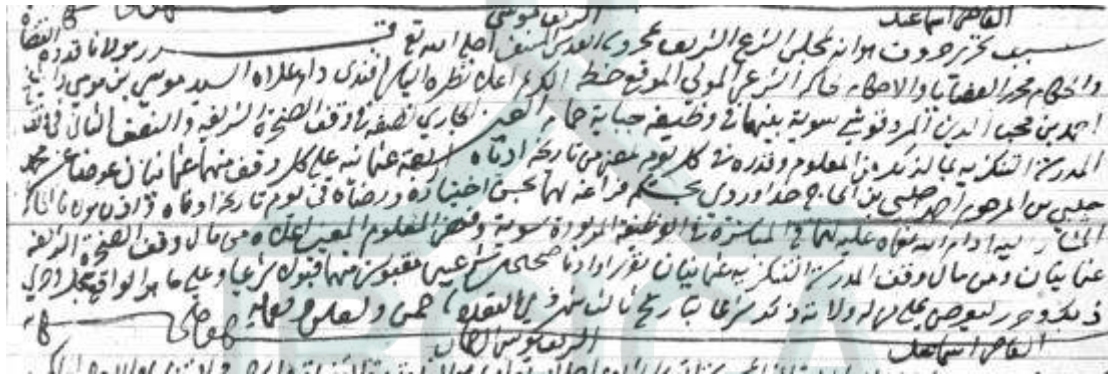 القاضي اسماعيل الشريف موسى
سبب تحرير حروف هو انه بمجلس الشرع الشريف بمحروسة القدس المنيف اجله الله تع قرر مولانا قدوة القضاة
والحكام محرر القضايا والاحكام حاكم الشرعي المولى الموقع خطه الكريم اعلاه نظره اليه افندي دام علاه السيد موسى بن موسى
احمد بن محب الدين سوية بينهما في وظيفة جباية حمام العين الجاري نصفه في وقف الصخرة الشريفة والنصف الثاني في وقف
المدرسة التنكزية بما لذلك من المعلوم وقدره في كل يوم يمضي من تاريخه ادناه اربعة عثمانية على كل وقف منهما عثمانيان عوضا عن محمد
جلبي بن المرحوم احمد جلبي بن الحاج بحكم فراغه لهما بحسن اختياره ورضاه في يوم تاريخه ادناه واذن مولانا الحاكم
المشار اليه ادام الله نعماه عليه لهما في المباشرة في الوظيفة المزبورة سوية وقبض المعلوم المعين اعلاه من مال وقف الصخرة الشريفة
عثمانيان ومن مال وقف المدرسة التنكزية عثمانيان تقريرا واذنا صحيحين شرعيين مقبولين منهما قبولا شرعيا وعلى ما هو الواقع
ذلك وحرر ليعرض على من له ولاية ذلك شرعا بتاريخ ثالث من ذي القعدة
القاضي اسماعيل الشريف موسى